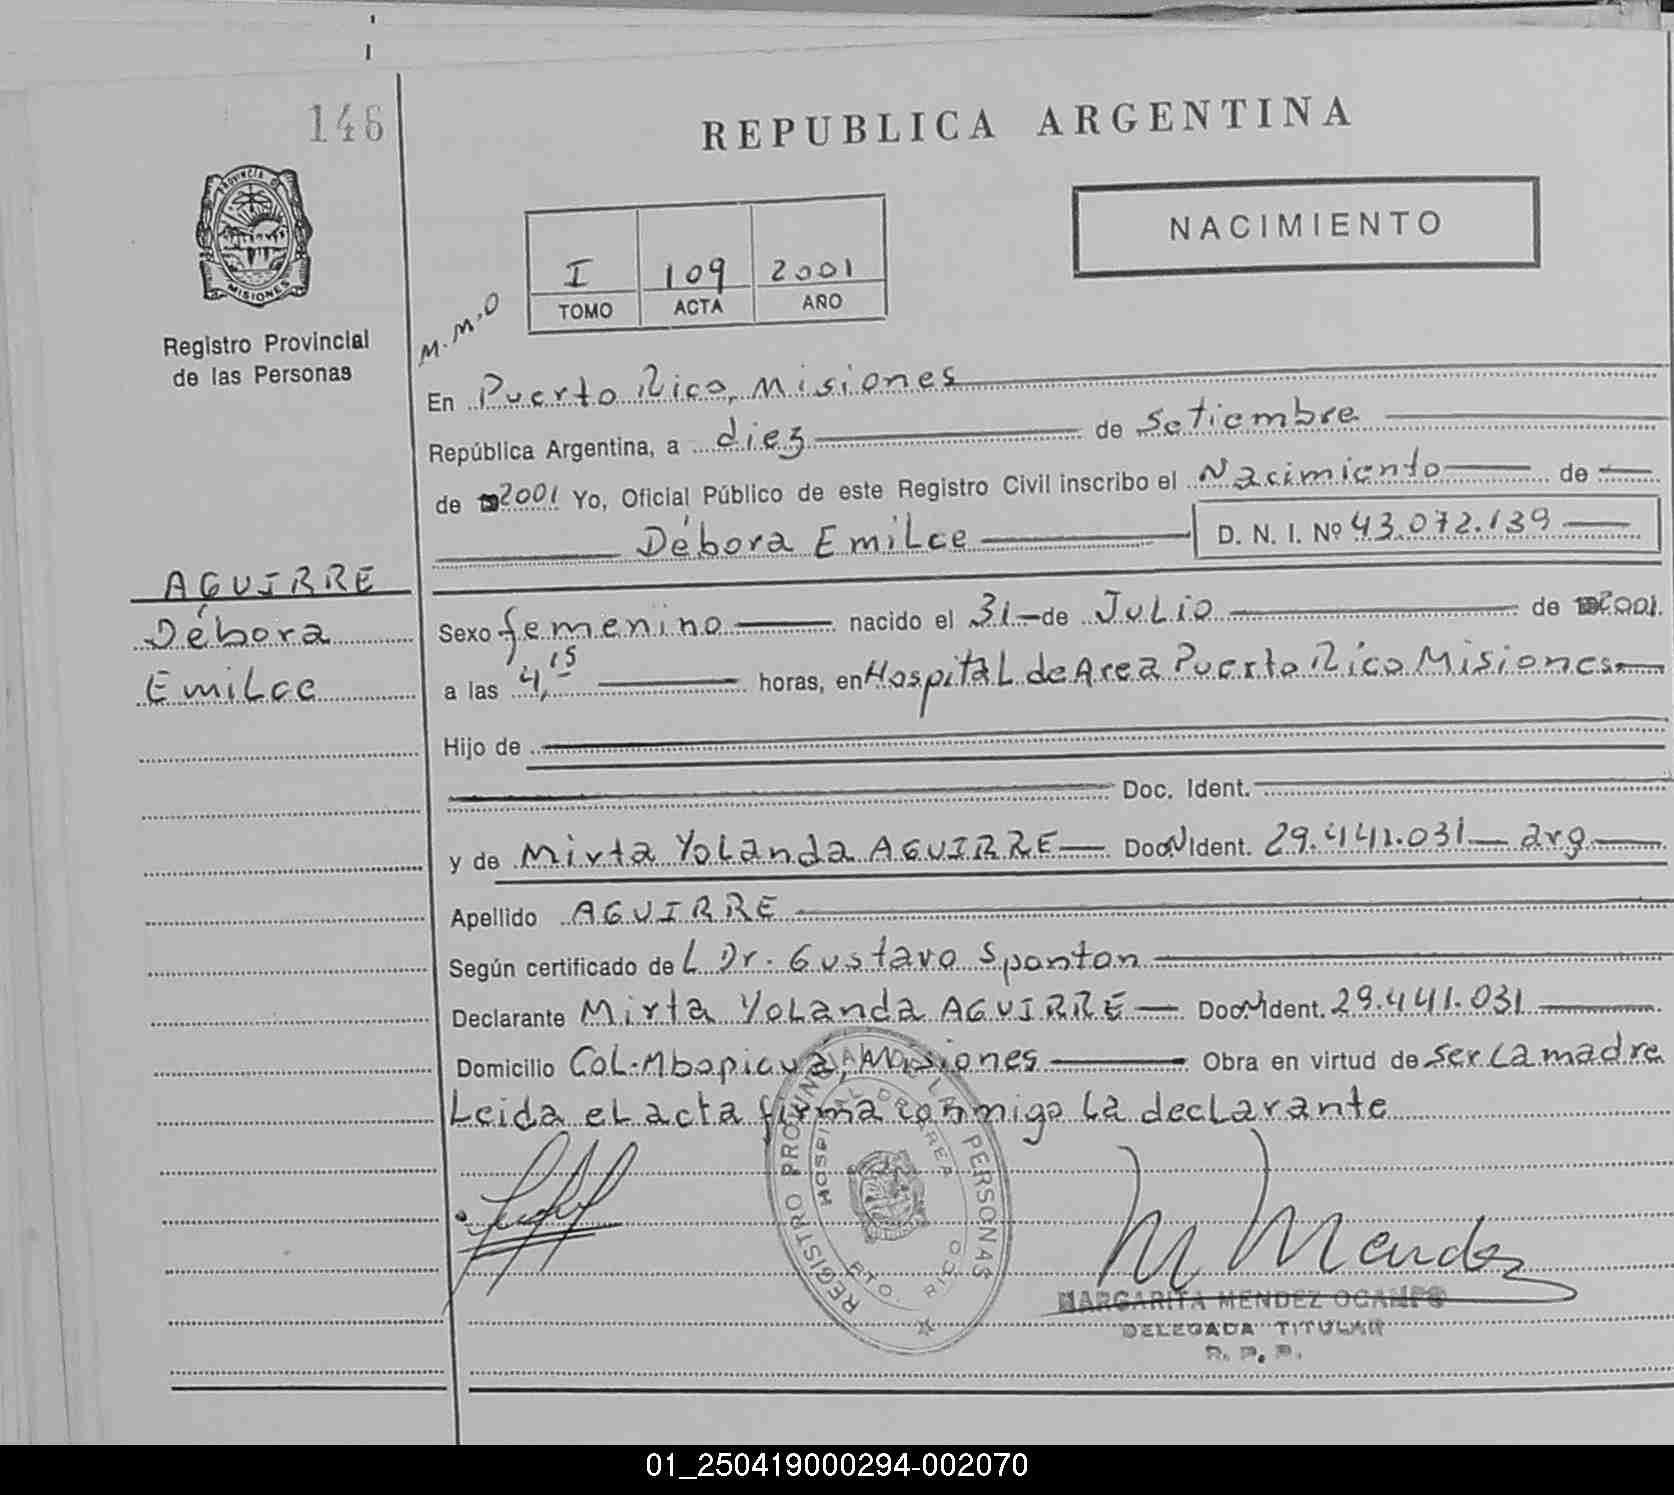 146
REPUBLICA ARGENTINA
PROVINCIA DE
MISIONES
Registro Provincial
de las Personas
NACIMIENTO
I 109 2001
TOMO ACTA AÑO
M.M.O
En Puerto Rico, Misiones
República Argentina, a diez de Setiembre
de 2001 Yo, Oficial Público de este Registro Civil inscribo el Nacimiento de
Débora Emilce D. N. I. Nº 43.072.139
AGUIRRE
Débora
Emilce
Sexo femenino nacido el 31 de Julio de 2001.
a las 4,15 horas, en Hospital de Area Puerto Rico Misiones
Hijo de
Doc. Ident.
y de Mirta Yolanda AGUIRRE Doc. Ident. 29.441.031 arg
Apellido AGUIRRE
Según certificado del Dr. Gustavo Sponton
Declarante Mirta Yolanda AGUIRRE Doc. Ident. 29.441.031
Domicilio Col. Mbopicuá, Misiones Obra en virtud de ser la madre
Leida el acta firma conmigo la declarante
REGISTRO PROVINCIAL DE LAS PERSONAS
HOSPITAL DE AREA
PTO. RICO
M Mendez
MARGARITA MENDEZ OCAMPO
DELEGADA TITULAR
R. P. P.
01_250419000294-002070